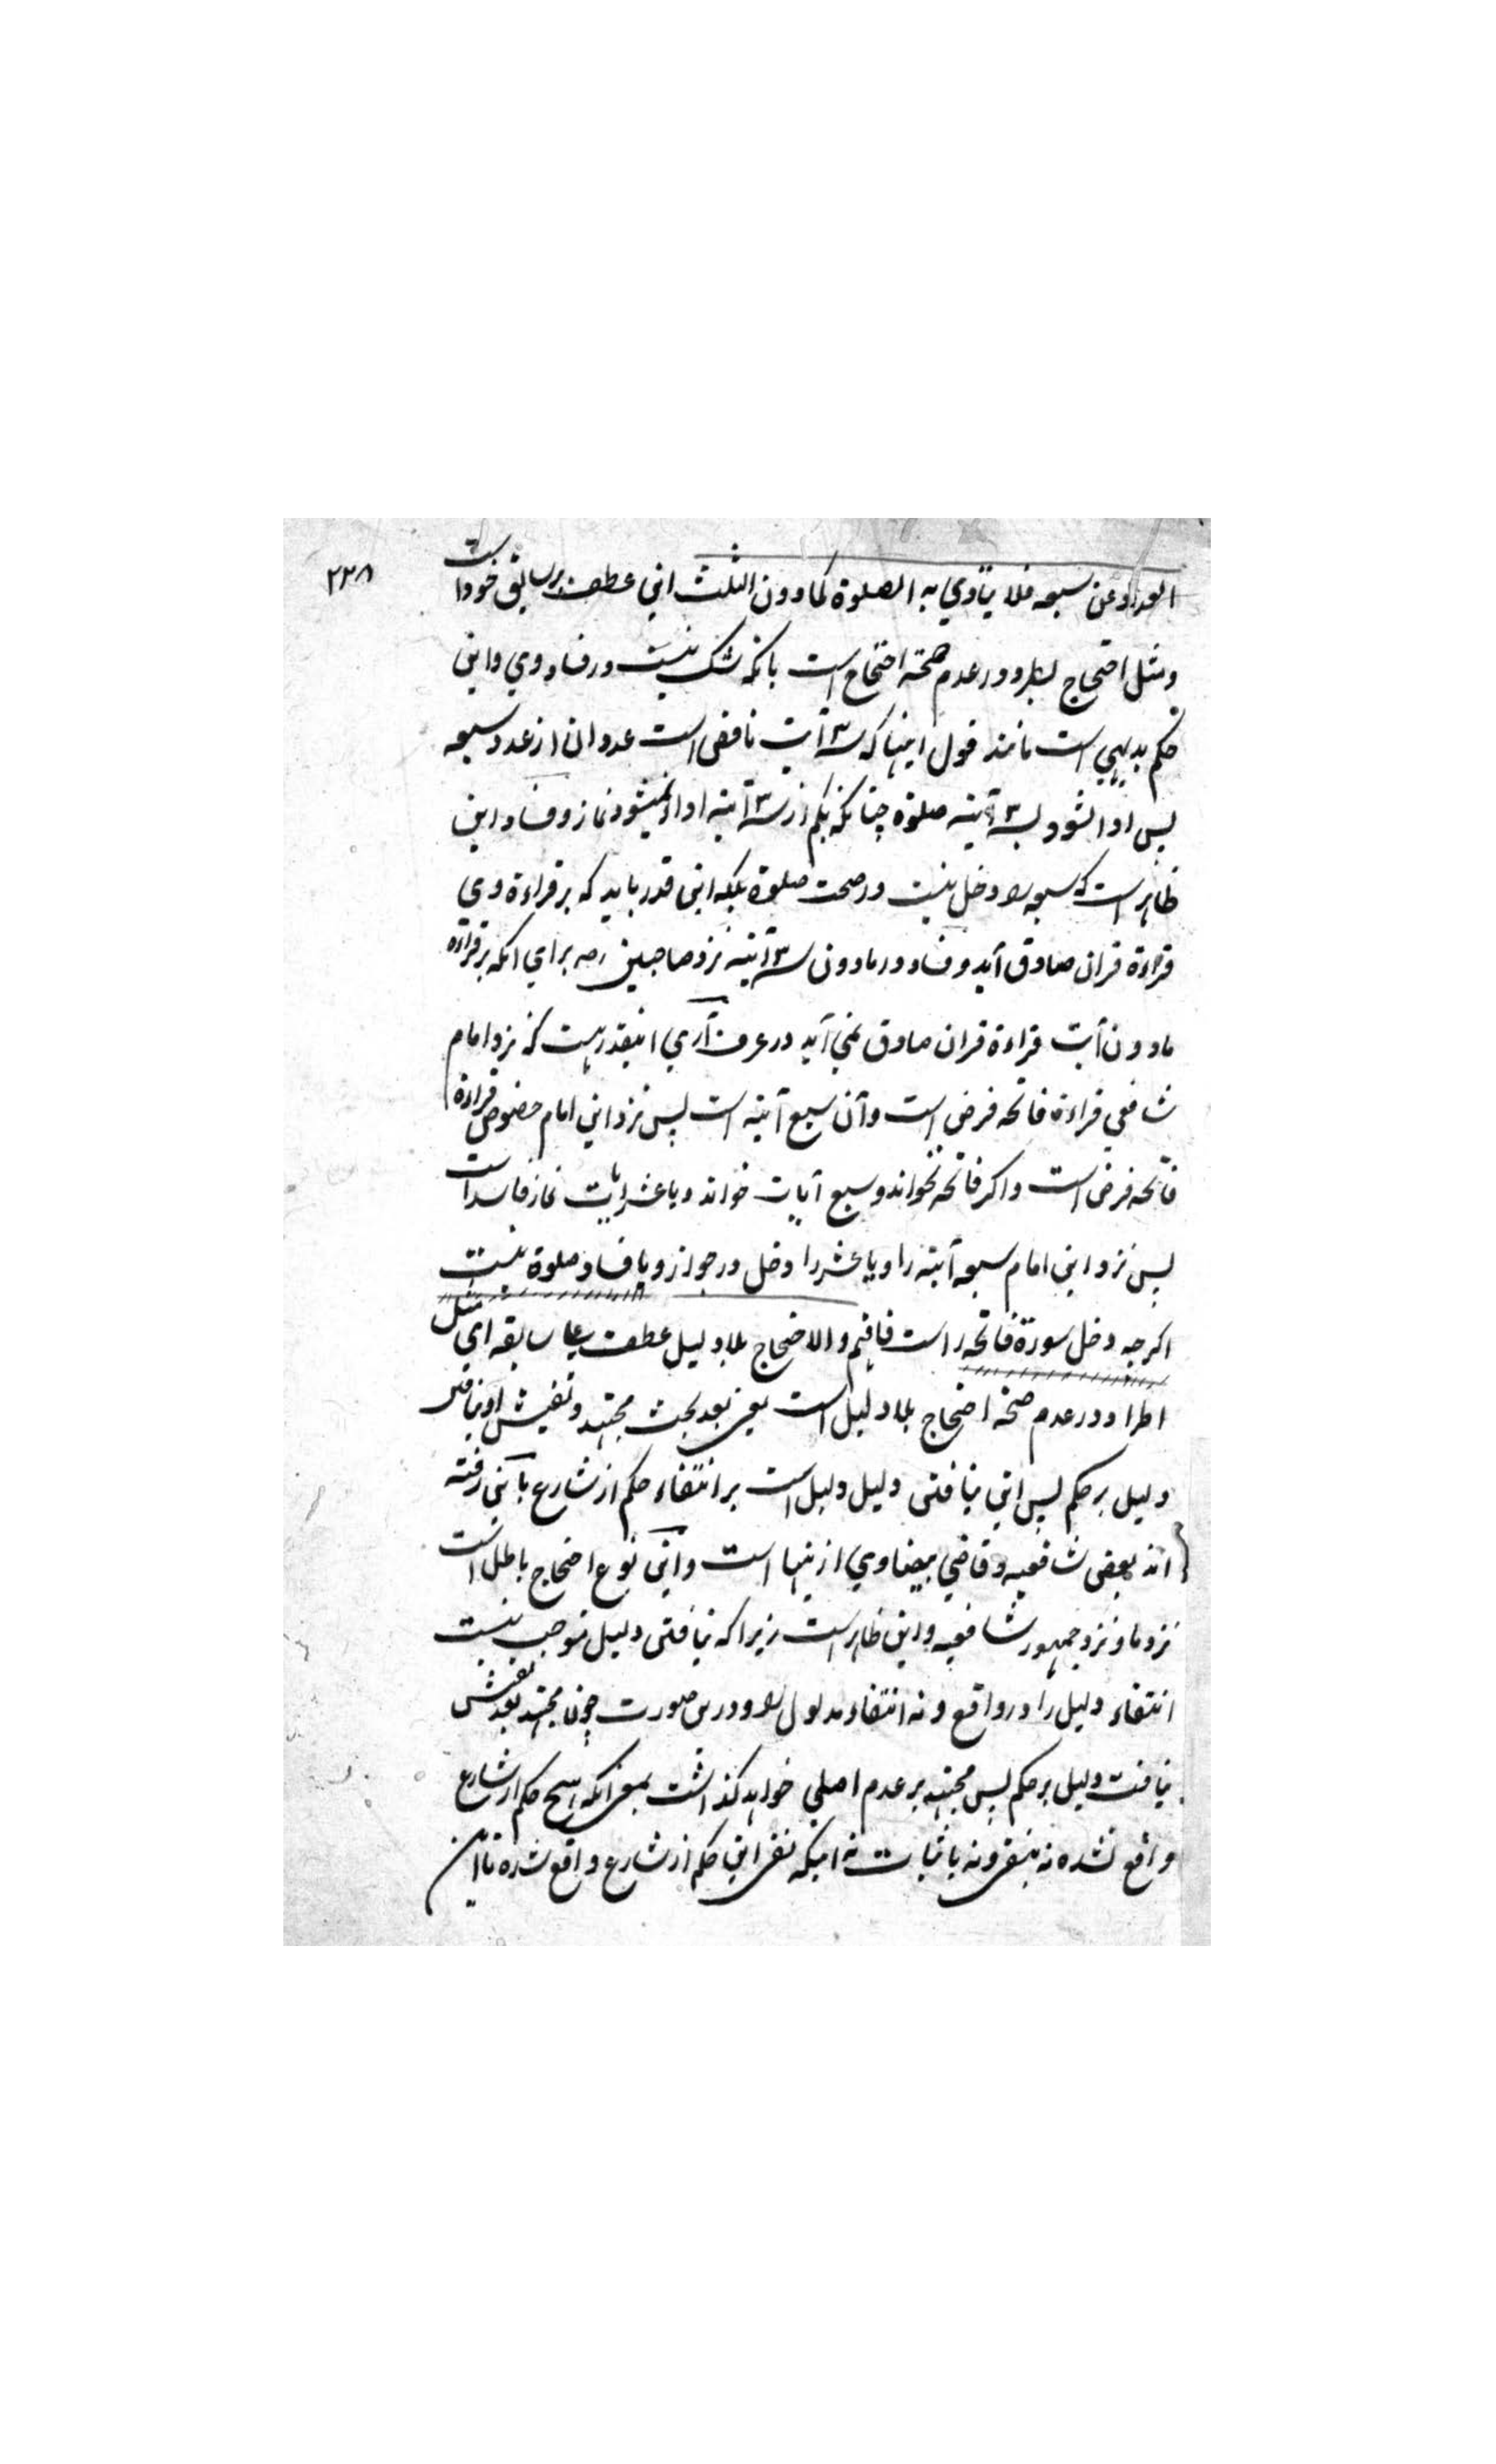 ۲۲۸
العدد عن سبعه فلا یتادی به الصلوة کما دون الثلث این عطف بر سابق خود است
و مثل احتجاج بطرد در عدم صحته احتجاج است بانکه شک نیست در فساد وی و این
حکم بدیهی است مانند قول اینها که سه آیت ناقص است عدد ان از عدد سبعه
پس ادا نشود بسه آیته صلوة چنانکه بکم از سه آیته ادا نمیشود نماز و فساد این
ظاهر است که سبعه را دخل نیست در صحت صلوة بلکه این قدر باید که بر قراءة وی
قراءة قران صادق آید و فساد در مادون سه آیته نزد صاحبین رحه برای انکه بر قراءة
مادون آیت قراءة قران صادق نمی آید در عرف آری اینقدر هست که نزد امام
شافعی قراءة فاتحه فرض است و آن سبع آیته است پس نزد این امام خصوص قراءة
فاتحه فرض است و اکر فاتحه نخواند و سبع آیات خواند و یا عشر ایات نماز فاسد است
پس نزد این امام سبعه آیته را و یا عشر را دخل در جواز و یا فساد صلوة نیست
اکرچه دخل سورة فاتحه راست فافهم والاحتجاج بلا دلیل عطف علی سابقه ای مثل
اطراد در عدم صحة احتجاج بلا دلیل است یعنی بعد بحث مجتهد و تفتیش او نیافتن
دلیل بر حکم پس این نیافتن دلیل دلیل است بر انتفاء حکم از شارع باین رفته
اند بعض شافعیه و قاضی بیضاوی ازینها است و این نوع احتجاج باطل است
نزد ما و نزد جمهور شافعیه و این ظاهر است زیرا که نیافتن دلیل موجب نیست
انتفاء دلیل را در واقع و نه انتفاء مدلول را و درین صورت چون مجتهد بعد تفتیش
نیافت دلیل بر حکم پس مجتهد بر عدم اصلی خواهد کذاشت بمعنی انکه هیچ حکم از شارع
واقع نشده نه بنفی و نه باثبات نه اینکه نفی این حکم از شارع واقع شده تا این